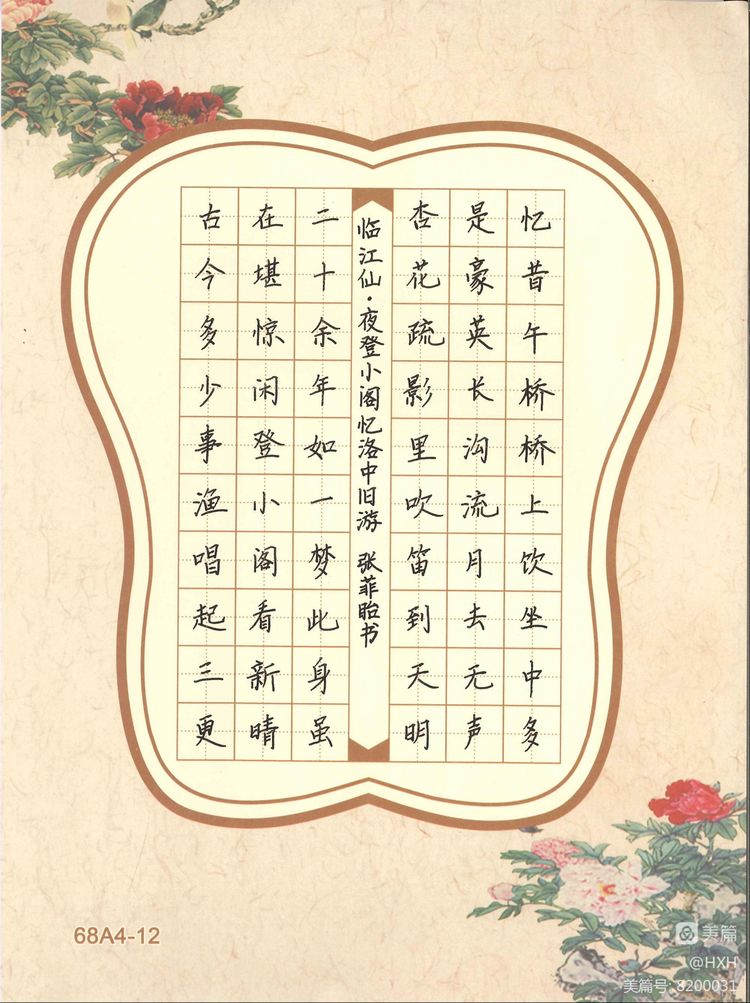 忆昔午桥桥上饮坐中多
是豪英长沟流月去无声
杏花疏影里吹笛到天明
临江仙·夜登小阁忆洛中旧游 张菲眙书
二十余年如一梦此身虽
在堪惊闲登小阁看新晴
古今多少事渔唱起三更
68A4-12
美篇
@HXH
美篇号:8200031